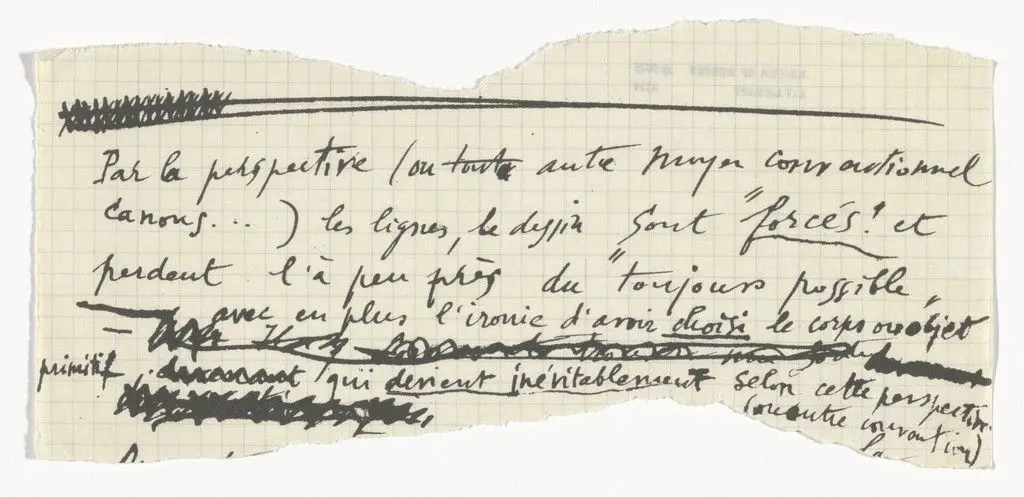 Par la perspective (ou toute autre moyen conventionnel
canons...) les lignes, le dessin sont "forcés" et
perdent l'à peu près du "toujours possible"
— avec en plus l'ironie d'avoir choisi le corps ou objet
primitif qui devient inévitablement selon cette perspective
(ou autre convention)